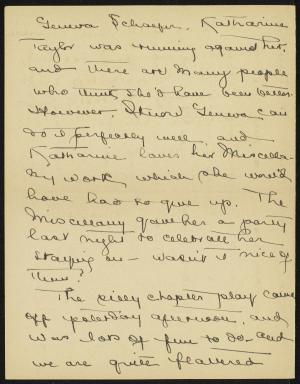 Geneva Schaefer. Katharine
Taylor was running against her,
and there are many people
who think she'd have been better.
However, I know Geneva can
do it perfectly well, and
Katharine loves her Miscella-
ny work which she would
have had to give up. The
Miscellany gave her a party
last night to celebrate her
staying on — wasn't it nice of
them?
The silly chapter play came
off yesterday afternoon, and
was lots of fun to do — and
we are quite flattered